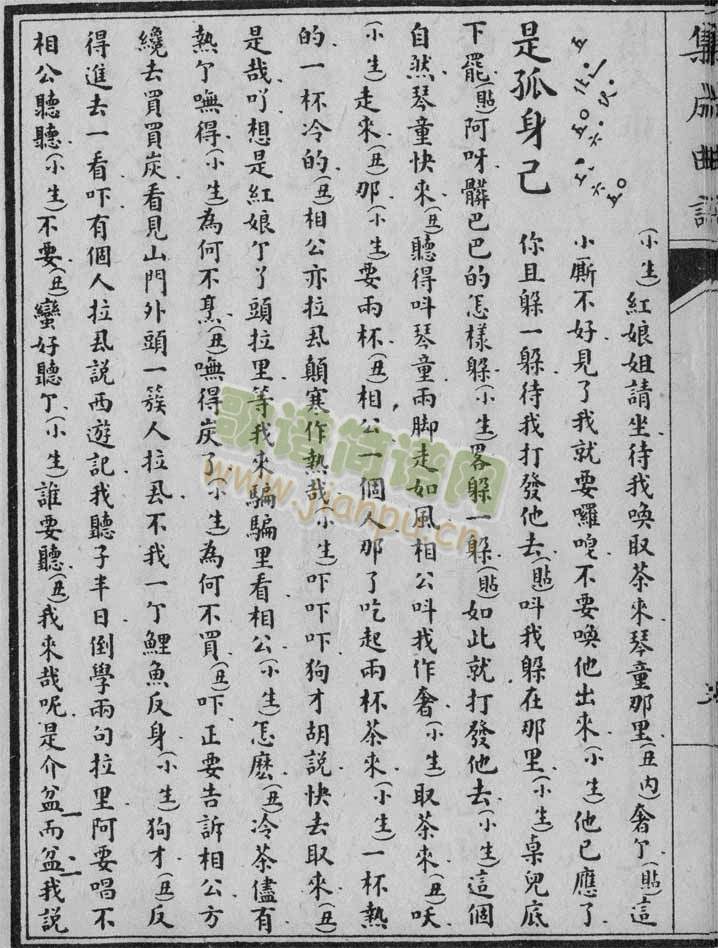 集成曲譜
是孤身己
(小生)紅娘姐請坐待我喚取茶來琴童那里(丑內)奢𠆩(貼)這
小廝不好見了我就要囉唣不要喚他出來(小生)他已應了
你且躲一躲待我打發他去(貼)呌我躲在那里(小生)桌兒底
下罷(貼)阿呀髒巴巴的怎樣躲(小生)畧躲一躲(貼)如此就打發他去(小生)這個
自然琴童快來(丑)聽得呌琴童兩脚走如風相公呌我作奢(小生)取茶來(丑)
(小生)走來(丑)那(小生)要兩杯(丑)相公一個人那了吃起兩杯茶來(小生)一杯熱
的一杯冷的(丑)相公亦拉厾顛寒作熱哉(小生)吓吓吓狗才胡說快去取來(丑)
是哉吖想是紅娘丫頭拉里等我來騙騙里看相公(小生)怎麽(丑)冷茶儘有
熱嘸得(小生)為何不烹(丑)嘸得炭了(小生)為何不買(丑)吓正要告訴相公方
纔去買買炭看見山門外頭一簇人拉厾不我一鯉魚反身(小生)狗才(丑)反
得進去一看吓有個人拉厾說西遊記我聽子半日倒學兩句拉里阿要唱不
相公聽聽(小生)不要(丑)蠻好聽(小生)誰要聽(丑)我來哉呢是介盆而盆我說
歌谱简谱网
www.jianpu.cn